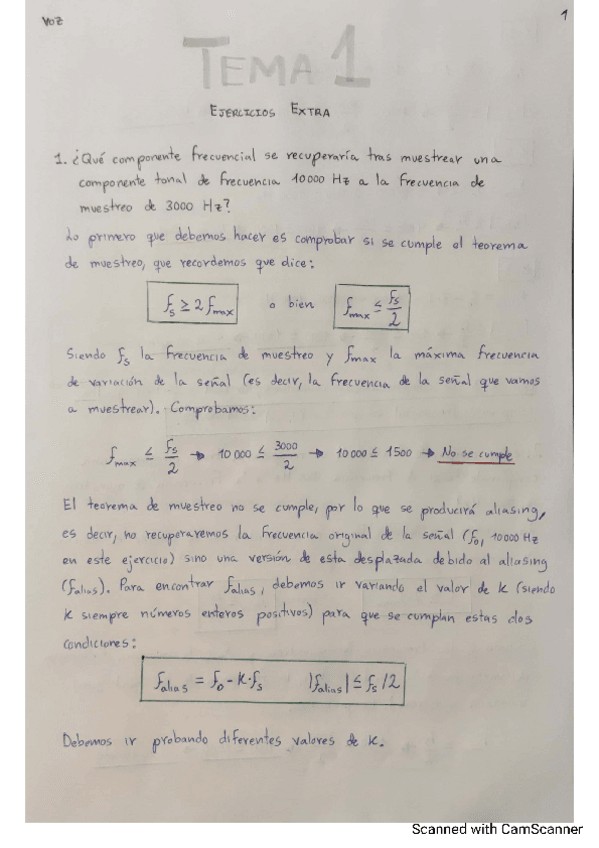 VOZ
1
TEMA 1
EJERCICIOS EXTRA
1. ¿Qué componente frecuencial se recuperaría tras muestrear una
componente tonal de frecuencia 10000 Hz a la frecuencia de
muestreo de 3000 Hz?
Lo primero que debemos hacer es comprobar si se cumple el teorema
de muestreo, que recordemos que dice:
fs ≥ 2 fmax o bien fmax ≤ fs/2
Siendo fs la frecuencia de muestreo y fmax la máxima frecuencia
de variación de la señal (es decir, la frecuencia de la señal que vamos
a muestrear). Comprobamos:
fmax ≤ fs/2 → 10 000 ≤ 3000/2 → 10 000 ≤ 1500 → No se cumple
El teorema de muestreo no se cumple, por lo que se producirá aliasing,
es decir, no recuperaremos la frecuencia original de la señal (f0, 10000 Hz
en este ejercicio) sino una versión de esta desplazada debido al aliasing
(falias). Para encontrar falias, debemos ir variando el valor de K (siendo
K siempre números enteros positivos) para que se cumplan estas dos
condiciones:
falias = f0 - K·fs |falias| ≤ fs/2
Debemos ir probando diferentes valores de K.
Scanned with CamScanner